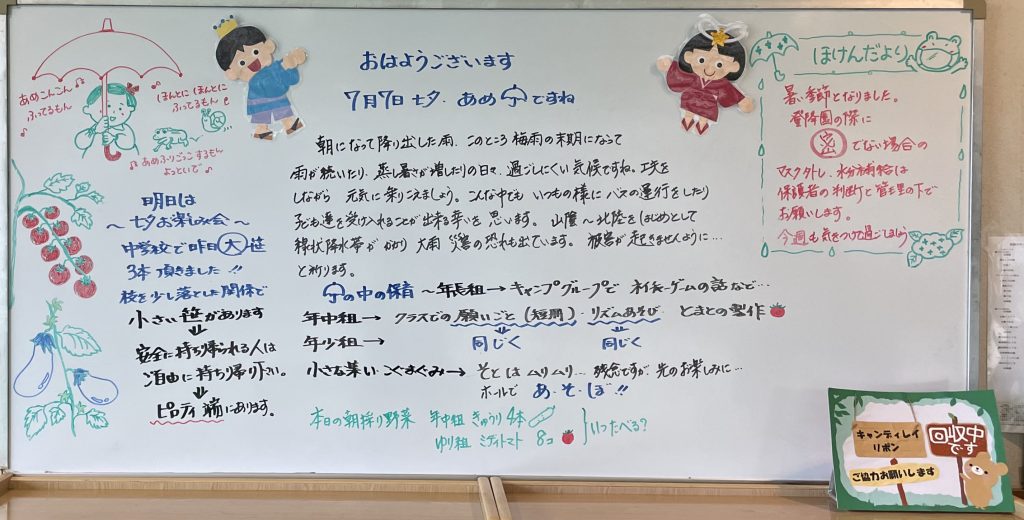 おはようございます
7月7日 七夕・あめ ですね
朝になって降り出した雨、このところ梅雨の末期になって
雨が続いたり、蒸し暑さが増したりの日々、過ごしにくい気候ですね。工夫を
しながら 元気に乗りこえましょう。こんな中でも いつもの様に バスの運行をしたり
子ども達を受け入れることが出来る幸いを思います。 山陰〜北陸をはじめとして
線状降水帯がかかり 大雨災害の恐れも出ています。被害が起きませんように…
と祈ります。
の中の保育 〜年長組→ キャンプグループで ネイチャーゲームの話など…
年中組→ クラスでの 願いごと(短冊)・リズムあそび とまとの製作
年少組→ 同じく 同じく
小さな集い・ → そとはムリムリ… 残念ですが 先のお楽しみに…
ホールで あ・そ・ぼ!!
本日の朝採り野菜 年中組 きゅうり 4本
ゆり組 ミディトマト 8コ
いつたべる?
あめこんこん
ほんとに ほんとに
ふってるもん
あめふりごっこするもん
よっといで
明日は
〜七夕お楽しみ会〜
中学校で昨日 大 笹
3本 頂きました!!
枝を少し落とした関係で
小さい笹があります
安全に持ち帰られる人は
ご自由に持ち帰り下さい。
ピロティ端にあります。
ほけんだより
暑い季節となりました。
登降園の際に
でない場合の
マスク外し、水分補給は
保護者の判断と管理の下で
お願いします。
今週も気をつけて過ごしましょう
キャンディレイ
リボン
回収中
です
ご協力お願いします